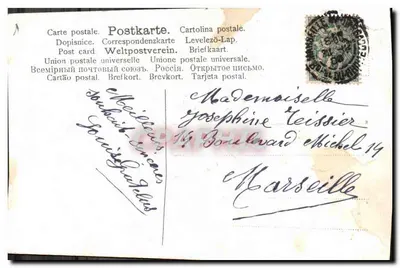 Carte postale. Postkarte. Cartolina postale.
Dopisnice. Correspondenzkarte. Levelezö-Lap.
Post card Weltpostverein. Briefkaart.
Union postale universelle. Unione postale universale.
Всемірный почтовый союзъ. Россія. Открытое письмо.
Cartão postal. Brefkort. Brevkort. Tarjeta postal.
Meilleurs
souhaits sincères
Mademoiselle
Josephine Teissier
19 Boulevard Michel 19
Marseille